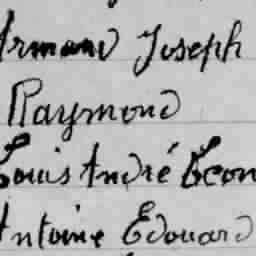 Armand Joseph
Raymond
Louis André Léon
Antoine Edouard